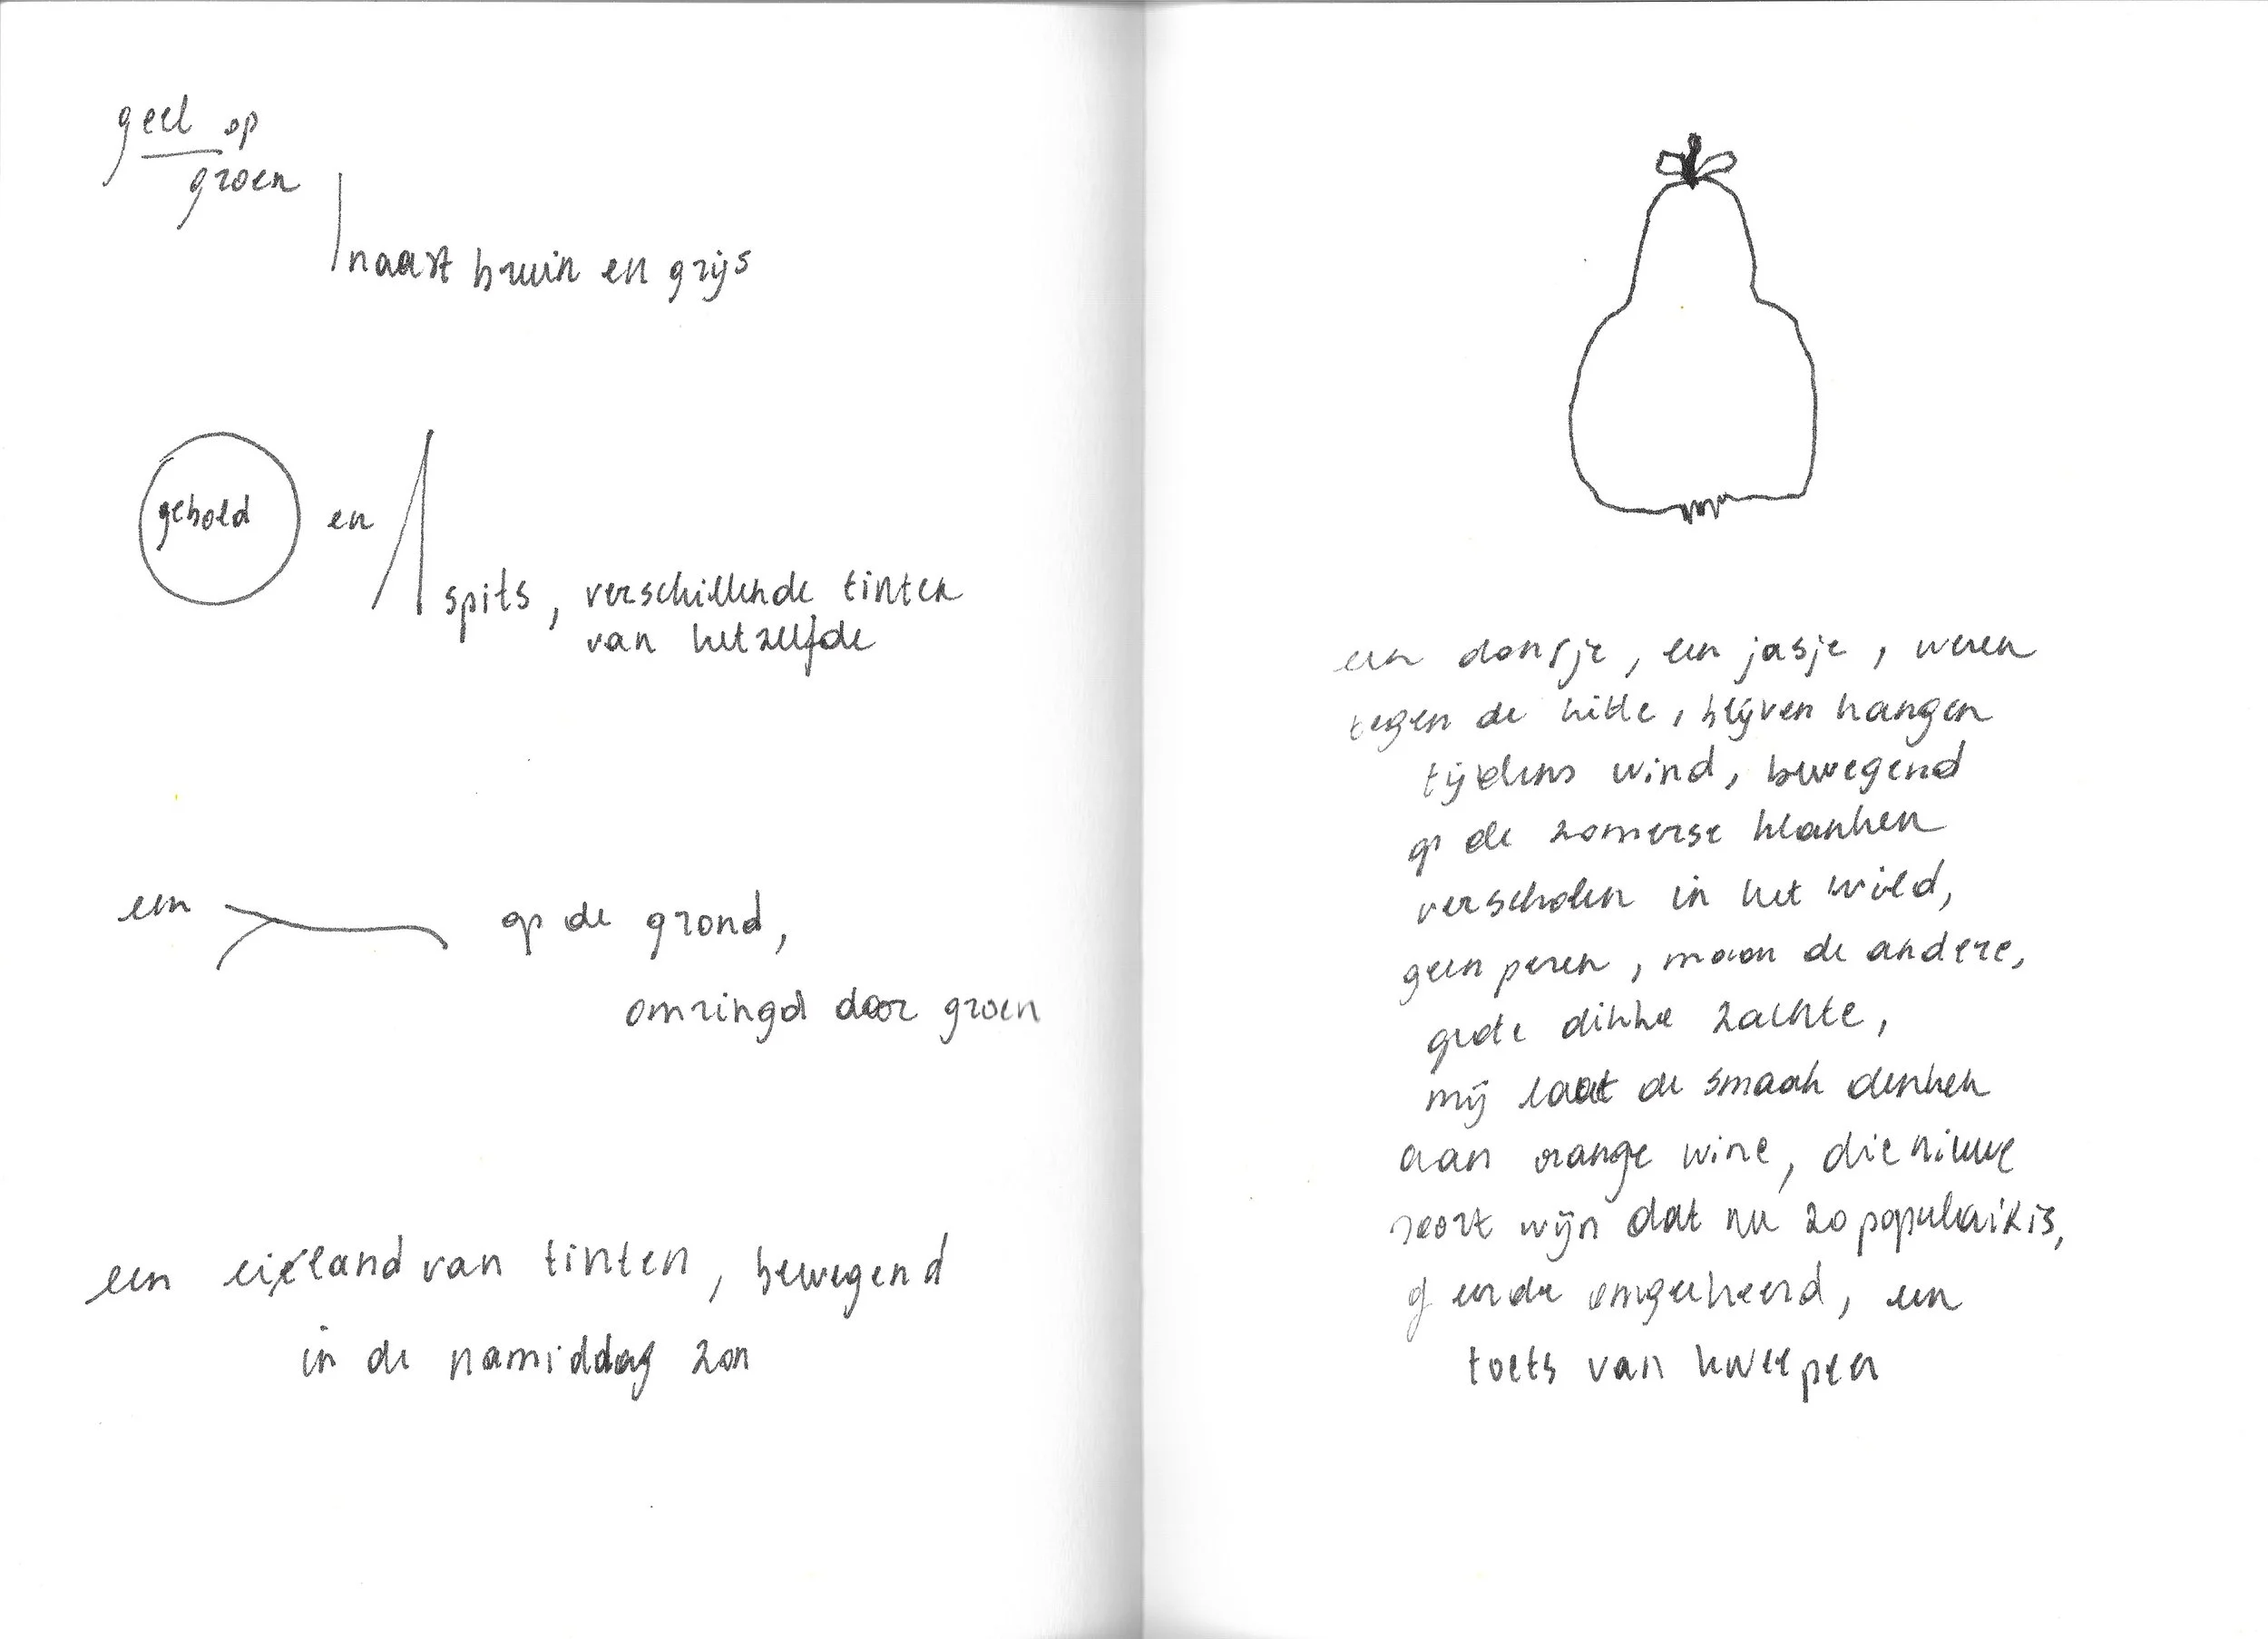 geel op
groen
naast bruin en grijs
gebold en
spits, verschillende tinten
van hetzelfde
een op de grond,
omringd door groen
een eiland van tinten, bewegend
in de namiddag zon
een donsje, een jasje, weren
tegen de hitte, blijven hangen
tijdens wind, bewegend
op de zomerse klanken
verscholen in het wild,
geen peren, maar de andere,
grote dikke zachte,
mij laat de smaak denken
aan orange wine, die nieuwe
soort wijn dat nu zo populair is,
of eerder omgekeerd, een
toets van kweepeer